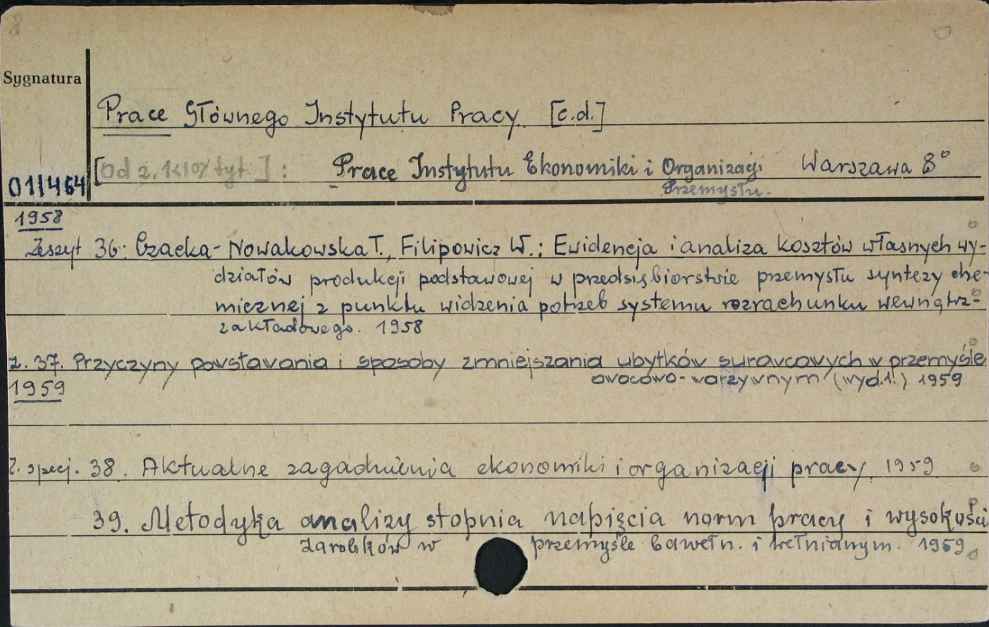 Sygnatura
Prace Głównego Instytutu Pracy [c.d.]
011464 [Od z. tyt.] : Prace Instytutu Ekonomiki i Organizacji Warszawa 8°
Przemysłu.
1958
Zeszyt 36. Czacka-Nowakowska T., Filipowicz W.: Ewidencja i analiza kosztów własnych wy-
działów produkcji podstawowej w przedsiębiorstwie przemysłu syntezy che-
micznej z punktu widzenia potrzeb systemu rozrachunku wewnątrz-
zakładowego. 1958
z. 37. Przyczyny powstawania i sposoby zmniejszania ubytków surowcowych w przemyśle
1959 owocowo-warzywnym (wyd.1.) 1959
Z. specj. 38. Aktualne zagadnienia ekonomiki i organizacji pracy 1959
39. Metodyka analizy stopnia napięcia norm pracy i wysokości
zarobków w przemyśle bawełn. i wełnianym. 1959